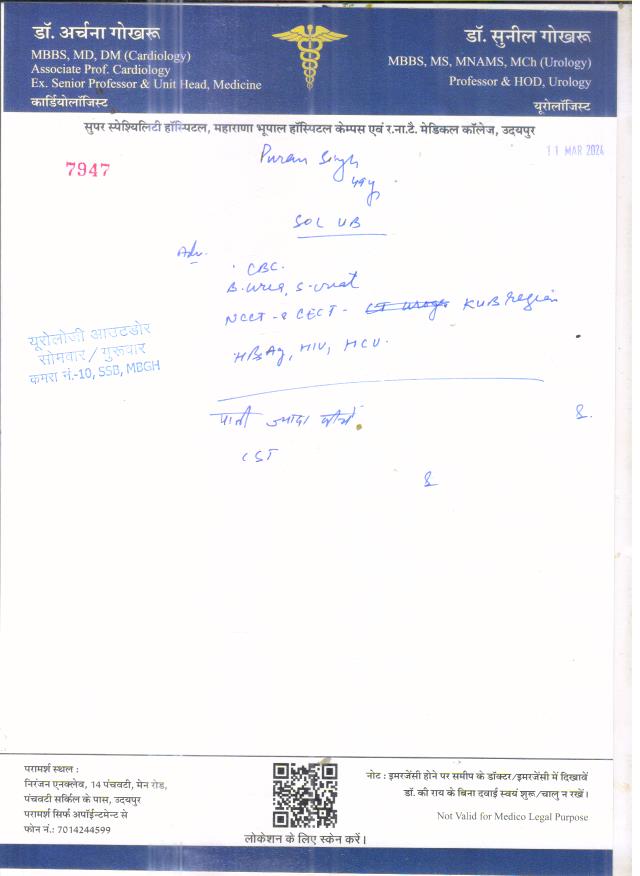 डॉ. अर्चना गोखरू
MBBS, MD, DM (Cardiology)
Associate Prof. Cardiology
Ex. Senior Professor & Unit Head, Medicine
कार्डियोलॉजिस्ट
डॉ. सुनील गोखरू
MBBS, MS, MNAMS, MCh (Urology)
Professor & HOD, Urology
यूरोलॉजिस्ट
सुपर स्पेश्यिलिटी हॉस्पिटल, महाराणा भूपाल हॉस्पिटल केम्पस एवं र.ना.टै. मेडिकल कॉलेज, उदयपुर
7947
11 MAR 2024
Puran Singh
SOL UB
Adv.
CBC.
B. urea, S. creat
NCCT - & CECT - KUB region
HBsAg, HIV, HCV.
यूरोलोजी आउटडोर
सोमवार / गुरूवार
कमरा नं.-10, SSB, MBGH
पानी ज्यादा पीयें
CST
परामर्श स्थल :
निरंजन एनक्लेव, 14 पंचवटी, मेन रोड,
पंचवटी सर्किल के पास, उदयपुर
परामर्श सिर्फ अपॉईन्टमेन्ट से
फोन नं.: 7014244599
लोकेशन के लिए स्केन करें।
नोट : इमरजेंसी होने पर समीप के डॉक्टर/इमरजेंसी में दिखावें
डॉ. की राय के बिना दवाई स्वयं शुरू/चालु न रखें।
Not Valid for Medico Legal Purpose